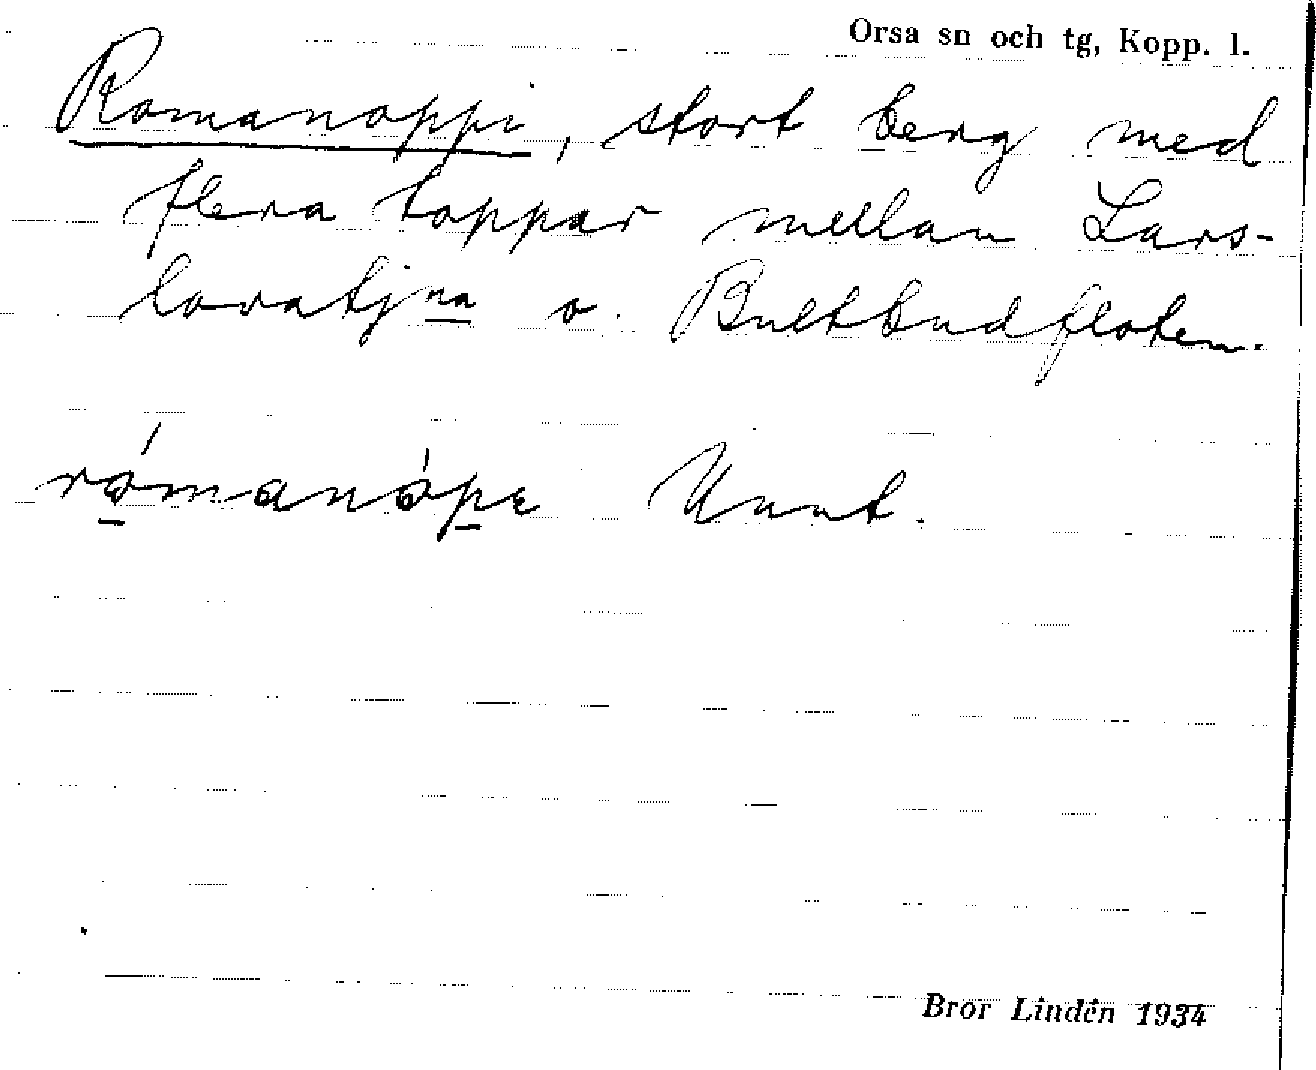 Orsa sn och tg, Kopp. l.
Romanoppi, stort berg med
flera toppar mellan Lars-
lovatjna o. Bultbudfloten.
rómanópe Unnt.
Bror Lindén 1934